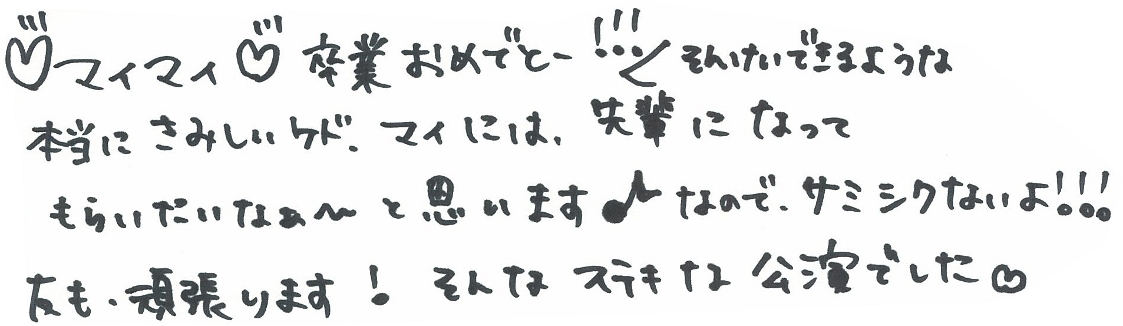 ♡マイマイ♡ 卒業おめでとー!!! そんけいできるような
本当にさみしいケド、マイには、先輩になって
もらいたいなぁ〜と思います♪なので、サミシクないよ!!!
友も、頑張ります! そんなステキな公演でした♡